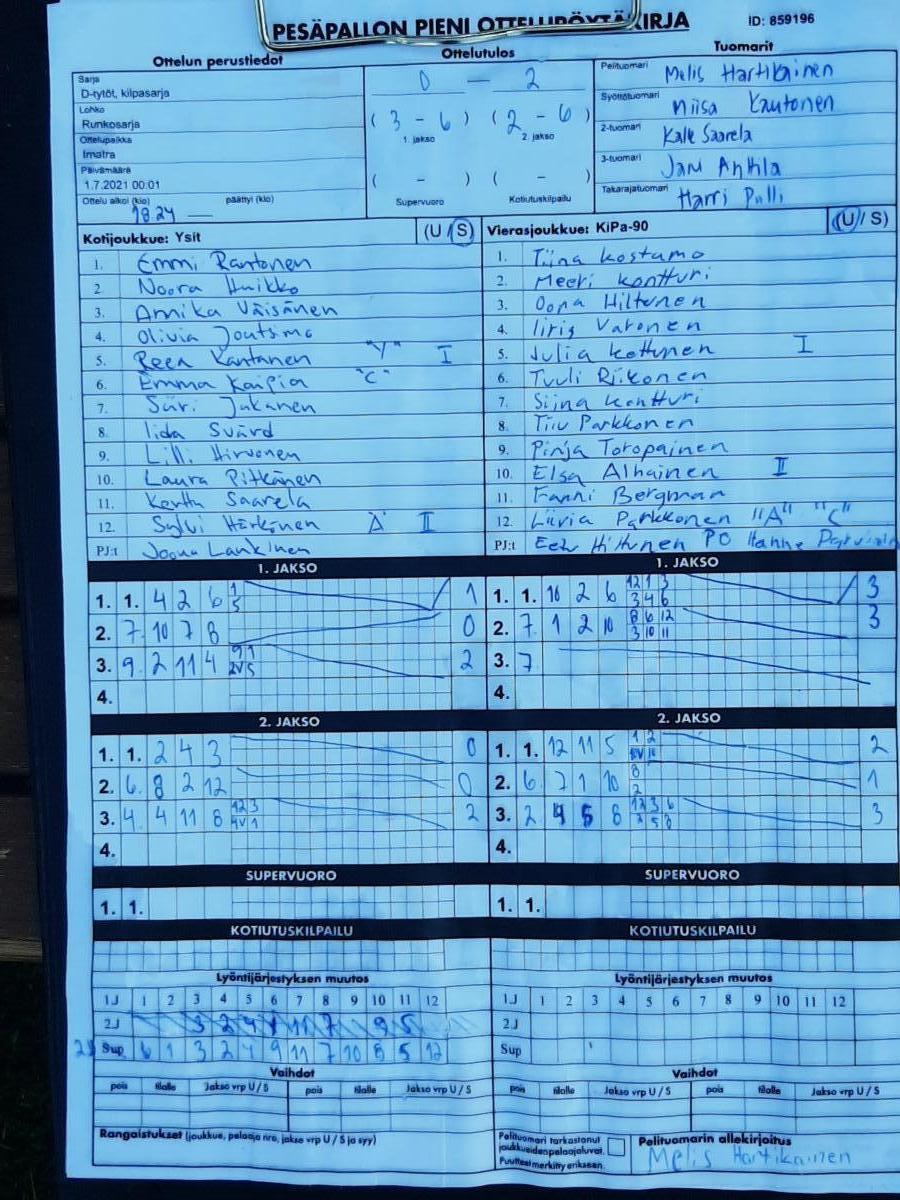 PESÄPALLON PIENI OTTELUPÖYTÄKIRJA ID: 859196
Ottelun perustiedot
Sarja
D-tytöt, kilpasarja
Lohko
Runkosarja
Ottelupaikka
Imatra
Päivämäärä
1.7.2021 00:01
Ottelu alkoi (klo) päättyi (klo)
18.24 —
Ottelutulos
0 - 2
( 3 - 6 ) ( 2 - 6 )
1. jakso 2. jakso
( - ) ( - )
Supervuoro Kotiutuskilpailu
Tuomarit
Pelituomari Melis Hartikainen
Syöttötuomari Niisa Kautonen
2-tuomari Kalle Saarela
3-tuomari Jani Anttila
Takarajatuomari Harri Pulli
Kotijoukkue: Ysit (U / S)
1. Emmi Rantonen
2 Noora Huikko
3. Annika Väisänen
4. Olivia Joutsimo
5. Reea Kantanen "V" I
6. Emma Kaipia "C"
7. Siiri Jukanen
8. Iida Svärd
9. Lilli Hirvonen
10. Laura Pitkänen
11. Kerttu Saarela
12. Sylvi Härkönen A II
PJ:t Joona Lankinen
Vierasjoukkue: KiPa-90 (U / S)
1. Tiina Kostamo
2. Meeri Kontturi
3. Oona Hiltunen
4. Iiris Varonen
5. Julia Kettunen I
6. Tuuli Riikonen
7. Siina Kontturi
8. Tiiu Parkkonen
9. Pinja Toropainen
10. Elsa Alhainen II
11. Fanni Bergman
12. Liivia Parkkonen "A" "C"
PJ:t Eetu Hiltunen PO Hanne
1. JAKSO
1. 1. 4 2 6 1 5 1
2. 7 10 7 8 0
3. 9 2 11 4 2
4.
2. JAKSO
1. 1. 2 4 3 0
2. 6 8 2 12 0
3. 4 4 11 8 12 3 4V 1 2
4.
SUPERVUORO
1. 1.
KOTIUTUSKILPAILU
Lyöntijärjestyksen muutos
1J 1 2 3 4 5 6 7 8 9 10 11 12
2J
Sup 6 1 3 2 4 9 11 7 10 8 5 12
Vaihdot
pois tilalle Jakso vrp U / S pois tilalle Jakso vrp U / S
Rangaistukset (joukkue, pelaaja nro, jakso vrp U / S ja syy)
1. JAKSO
1. 1. 10 2 6 12 1 3 3 4 6 3
2. 7 1 2 10 8 6 12 3 10 11 3
3. 7
4.
2. JAKSO
1. 1. 12 11 5 1 2 2
2. 6 7 1 10 8 2 1
3. 2 4 5 8 12 3 6 2 5 8 3
4.
SUPERVUORO
1. 1.
KOTIUTUSKILPAILU
Lyöntijärjestyksen muutos
1J 1 2 3 4 5 6 7 8 9 10 11 12
2J
Sup
Vaihdot
pois tilalle Jakso vrp U / S pois tilalle Jakso vrp U / S
Pelituomari tarkastanut
joukkueiden pelaajaluvat.
Puutteet merkitty erikseen.
Pelituomarin allekirjoitus
Melis Hartikainen